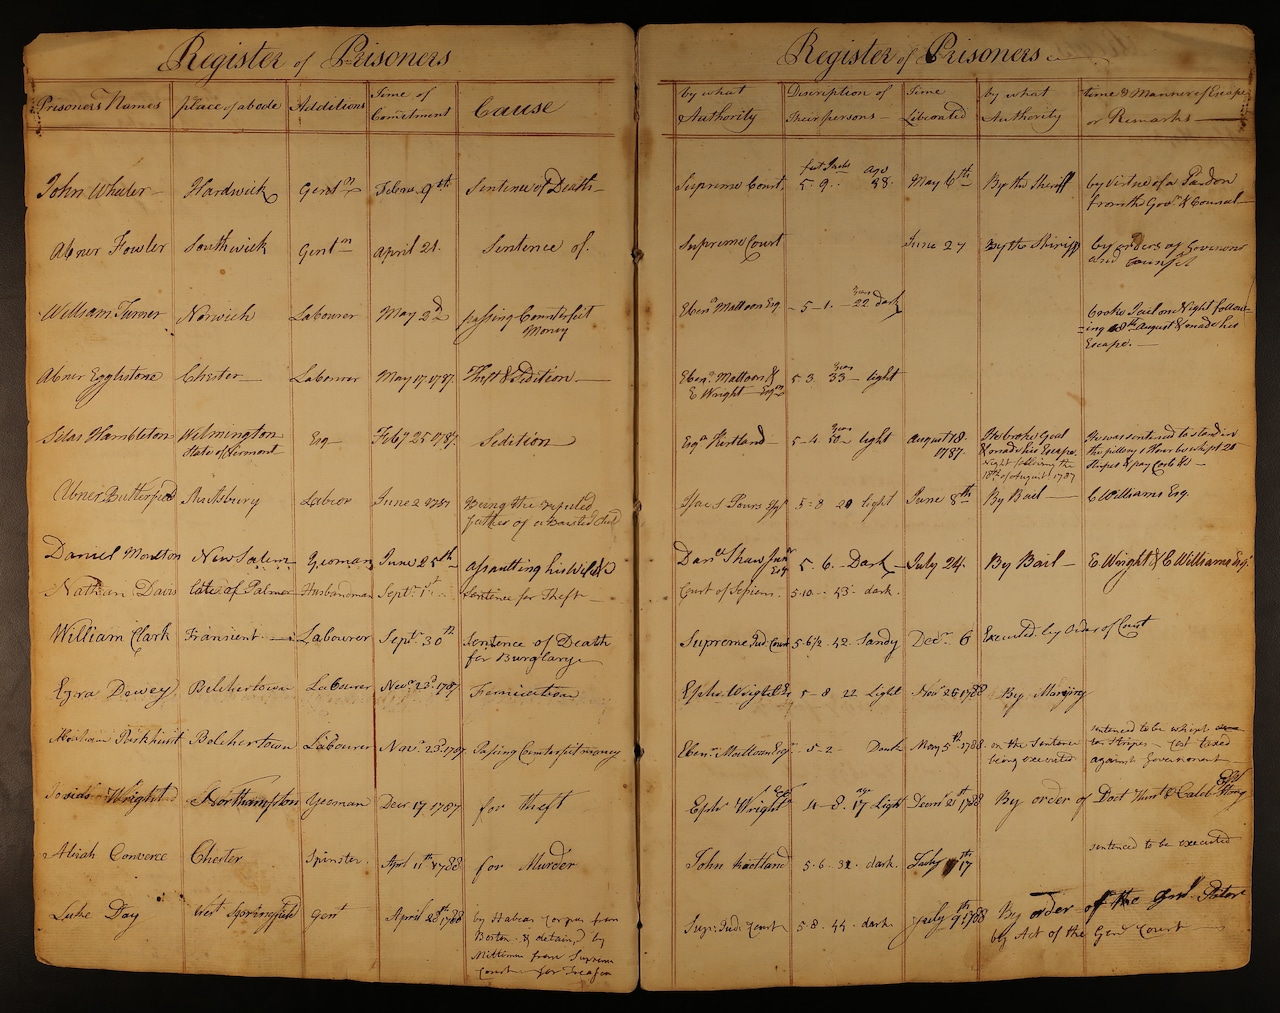 Register of Prisoners
Prisoners Names place of abode Additions Time of Comitment Cause
John Wheeler Hardwick Gentn Februy 9th Sentence of Death
Abner Fowler Southwick Gentn April 21. Sentence of.
William Turner Norwich Labourer May 22d passing Counterfeit
Money
Abner Egglestone Chester Labourer May 17 1787. Theft & Sedition
Silas Hambleton Wilmington Esq Feby 25 1787. Sedition
State of Vermont
Abner Butterfield Labour June 2 1787 Being the reputed
father of a Bastard Child
Daniel Moulton New Salem Yeoman June 25th assaulting his Wife &c
Nathan Davis late of Palmer Husbandman Septr 1st Sentence for Theft
William Clark Transient Labourer Septr 30th Sentence of Death
for Burglary
Ezra Dewey Belchertown Labourer Novr 23d 1787. Fornication
Abraham Parkhurst Belchertown Labourer Novr 23d. 1787 Passing Counterfeit money
Wright Northampton Yeoman Decr 17 1787 for theft
Abiah Converce Chester Spinster. Apri 11th 1788 for Murder
Luke Day West Springfield Gent April 28th 1788 by Habeas Corpus from
Boston & detaind by
Mittimus from Supreme
Court for Treason
Register of Prisoners
by what Discription of Time by what time & Manner of Escape
Authority Their persons Liberated Authority or Remarks
feet Inchs age
Supreme Court. 5. 9. 38. May 6th By the Sheriff by Virtue of a Pardon
from the Govr & Counsal
Supreme Court June 27 By the Shiriff by orders of Govenor
and Counsel
Years
Ebenr Mattoon Esq 5 - 1. 22 dark broke Jail one Night follow-
ing 18th August & made his
Escape.
Years
Ebenr. Mattoon & 5. 3. 33 light
E Wright Esqrs
Years
Esqr Kertland 5-4 50 light August 18. He broke Goal He was sentenced to stand in
1787. & made his Escape. the pillory 1 Hour be whipt 20
Night following the stripes & pay Costs &c
18th of August 1787
5-8 20 light June 8th By Bail C Williams Esq.
Danl Shaw Junr 5. 6. Dark July 24. By Bail E Wright & C Williams Esqr
Esq
Court of Sessions. 5-10 43 dark.
Supreme Jud Court 5-6½ 42 Sandy Decr 6 Executed by Order of Court
Ephm Wright Esq 5-8 22 Light Novr 26 1788 By Marying
Ebenr Mattoon Esqr 5-2 Dark May 5th 1788 on the Sentence
being executed
sentenced to be whipt
Stripes Cost taxed
against Government
Esqr age
Ephm Wright 4-8. 17 Light Decmr 21st 1788 By order of Doct Hunt & Caleb Strong
Esqr
John Kirtland 5.6. 32. dark. July 17th sentenced to be executed
Supr. Jud. Court 5-8. 44. dark. July 9 1788 By order of the
by Act of the Genl Court